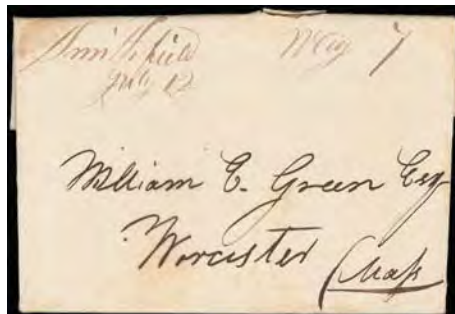 Smithfield 7
July 12
William E. Green Esq
Worcester
Mass